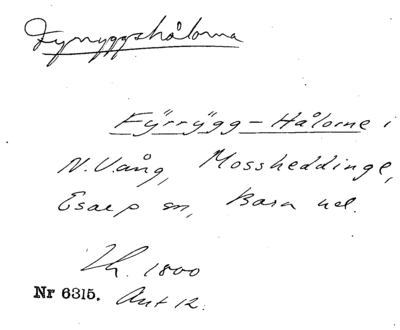 Fyrryggshålorna
Fÿrrÿgg-Hålorne i
N. Vång, Mossheddinge,
Esarp sn, Bara hd.
Lh. 1800
Nr 6315. Akt 12.